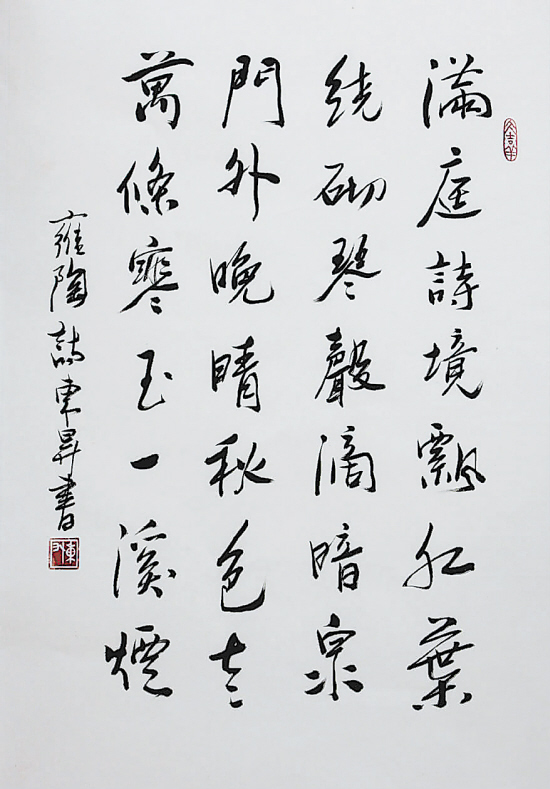 滿庭詩境飄紅葉
繞砌琴聲滴暗泉
門外晚晴秋色老
萬條寒玉一溪煙
雍陶詩東昇書
大吉羊